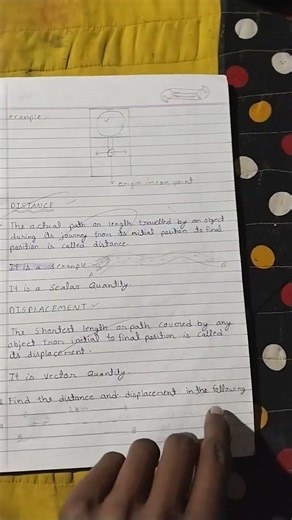 example
origin/mean point
DISTANCE
The actual path or length travelled by an object
during its journey from its initial position to final
position is called distance
It is a
It is a Scalar Quantity
DISPLACEMENT
The Shortest length or path covered by any
object from initial to final position is called
its displacement.
It is vector Quantity.
Find the distance and displacement in the following